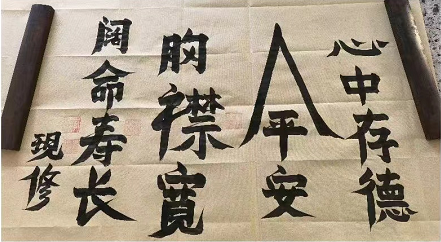 心中存德
人平安
胸襟寬
阔命寿长
現修